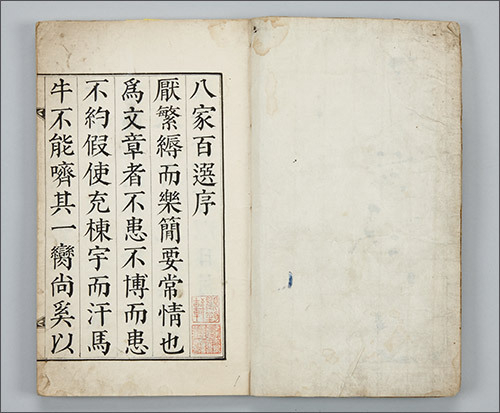 八家百選序
厭繁縟而樂簡要常情也
爲文章者不患不博而患
不約假使充棟宇而汗馬
牛不能嚌其一臠尙奚以